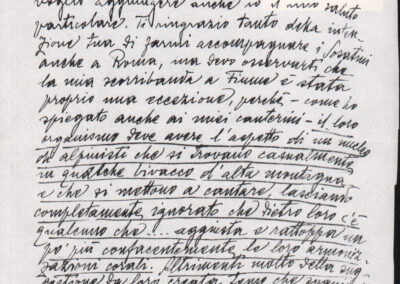 voglio aggiungere anche io il mio saluto
particolare. Ti ringrazio tanto della inten
zione tua di farmi accompagnare i Rosatini
anche a Roma, ma devo osservarti che
la mia scorribanda a Fiume è stata
proprio una eccezione, perchè - come ho
spiegato anche ai miei canterini - il loro
organismo deve avere l'aspetto di un nucleo
di alpinisti che si trovano casualmente
in qualche bivacco d'alta montagna
e che si mettono a cantare, lasciando
completamente ignorato che dietro loro c'è
qualcuno che... aggiusta e rattoppa un
po' più confacentemente le loro armoniz
zazioni corali. Altrimenti molto della sug
gestione da loro creata